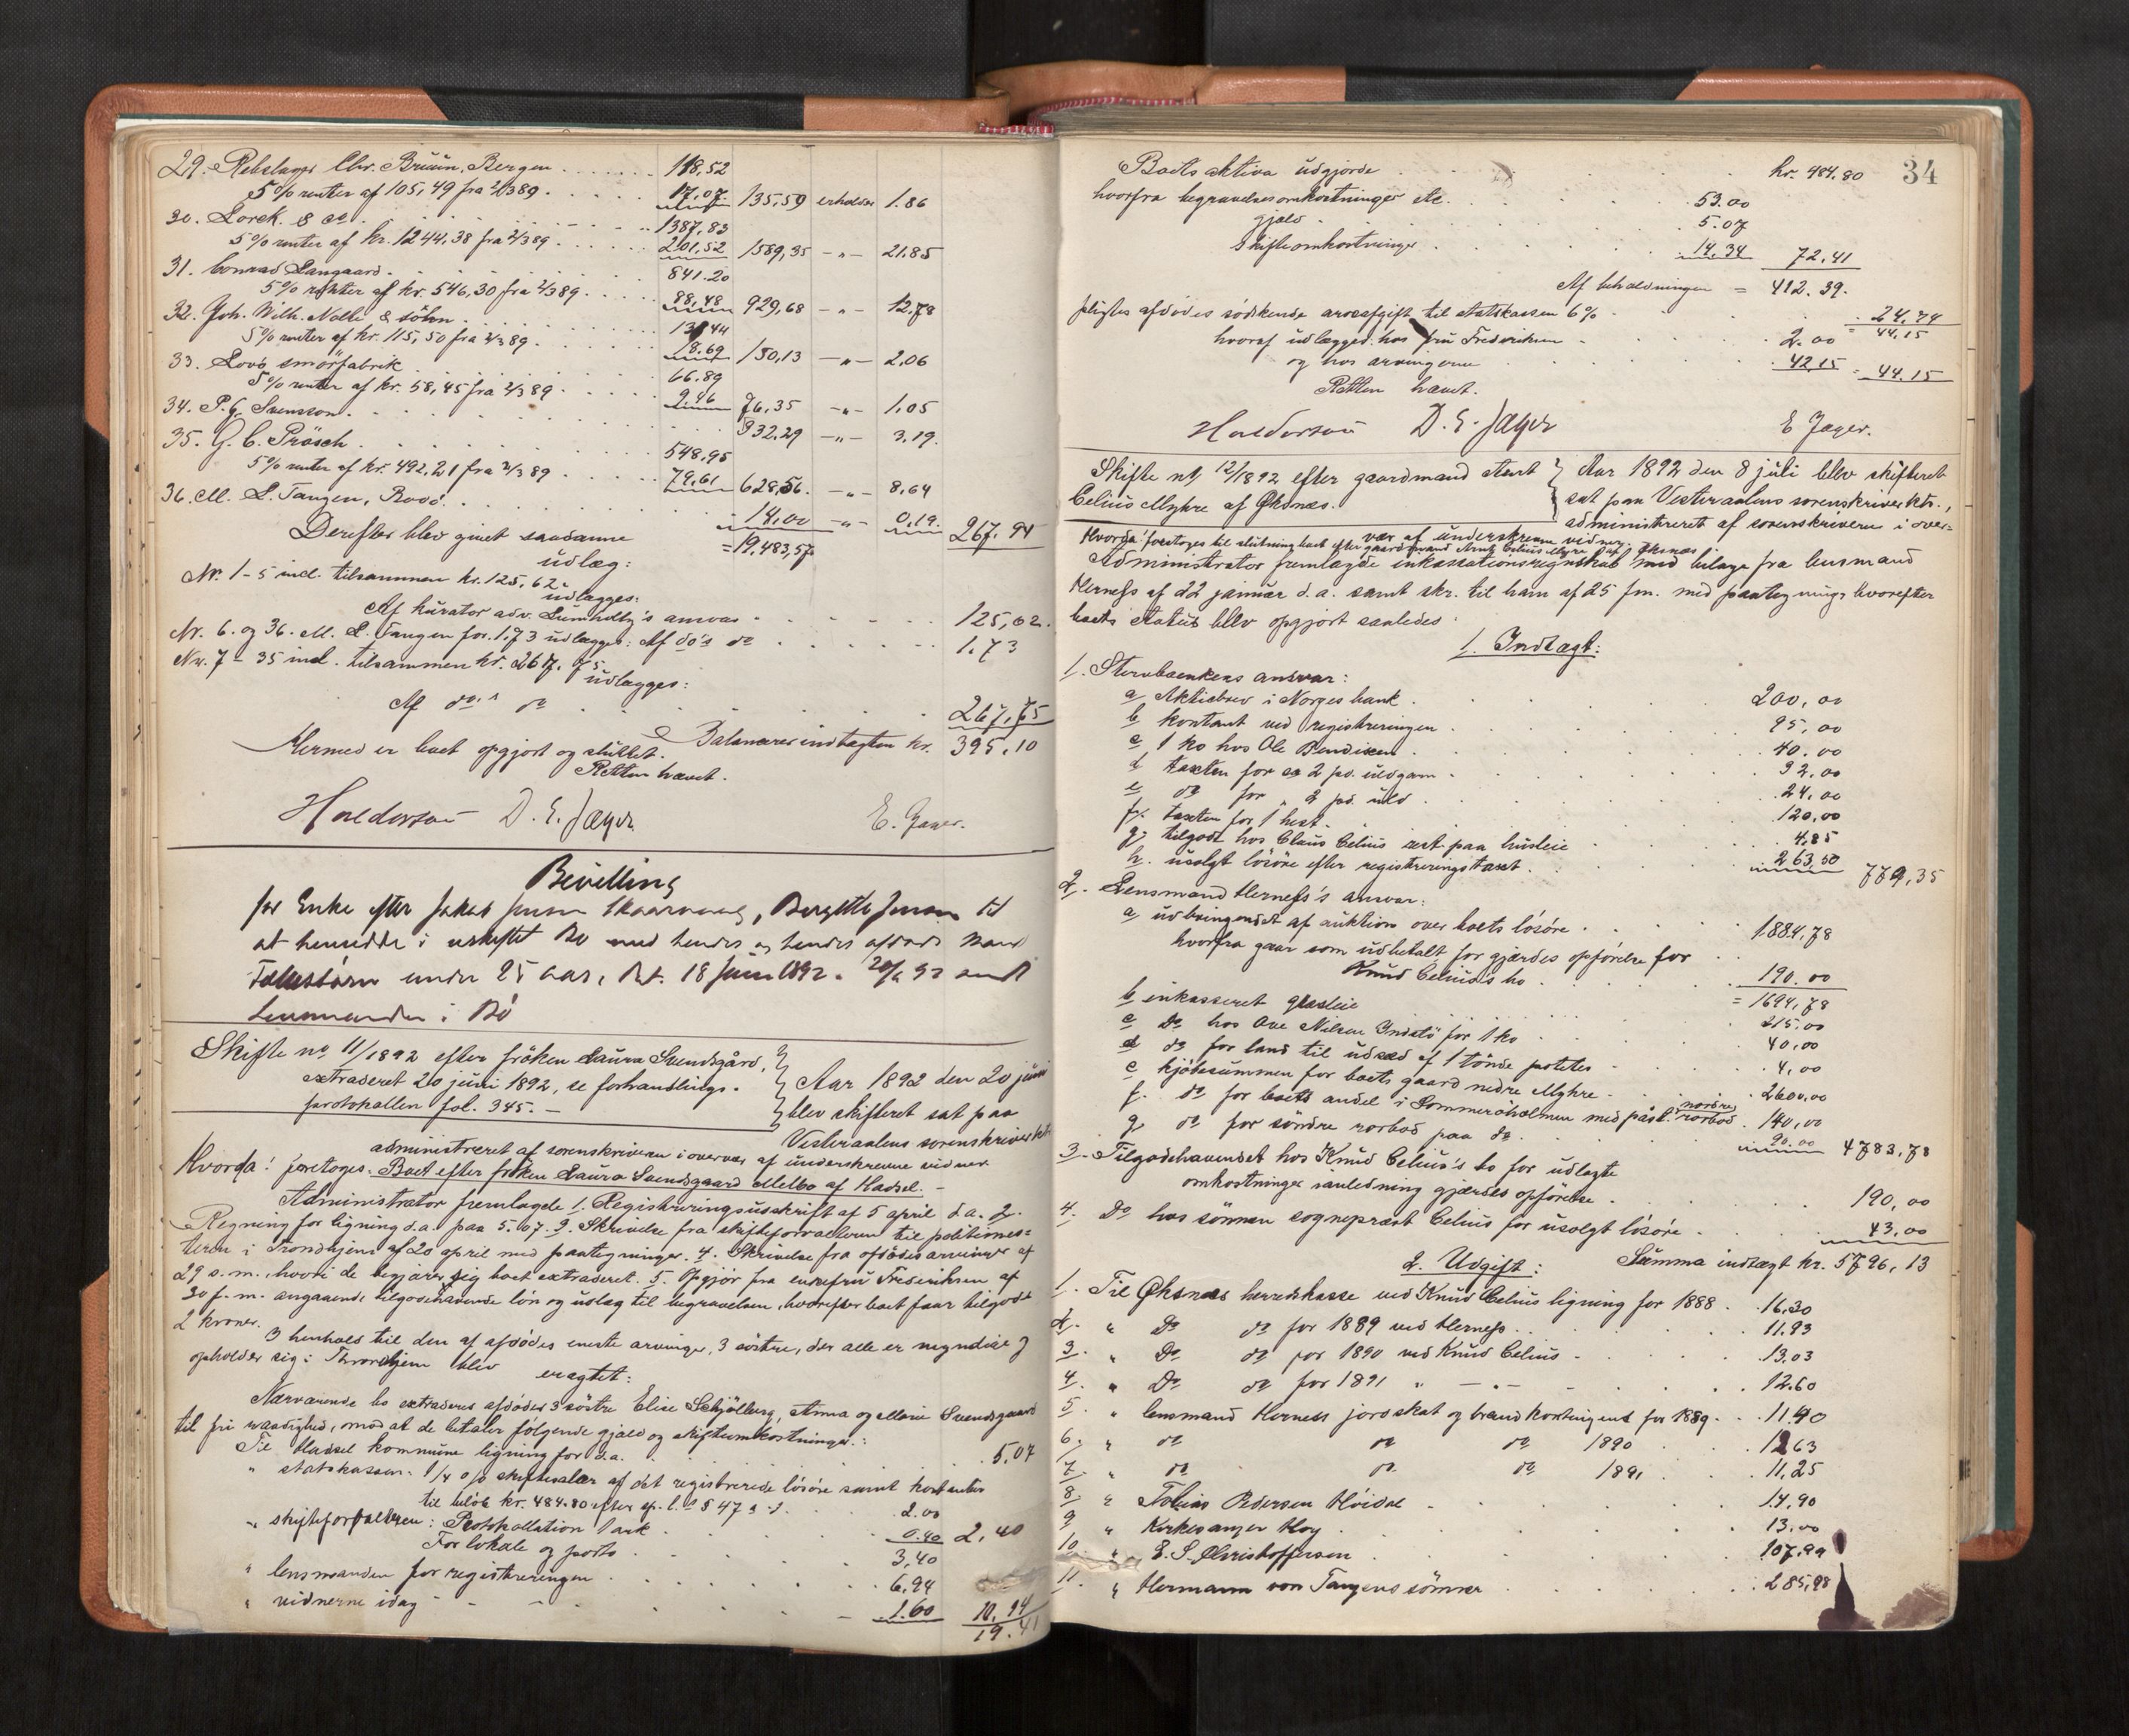 29. Rebslager Chr. Bruun, Bergen 118,52
5% renter af 105,49 fra 2/3 89 17,07 135,59 erholder 1.86
30. Lorck & Co. 1387,83
5% renter af kr. 1244,38 fra 2/3 89 201,52 1589,35 -"- 21.85
31. Conrad Langaard 841.20
5% renter af kr. 546,30 fra 2/3 89 88,48 929,68 -"- 12,78
32. Joh. Wilh. Nolte & söhn 131,44
5% renter af kr. 115,50 fra 2/3 89 18.69 150,13 -"- 2,06
33. Lovö smörfabrik 66.89
5% renter af kr. 58,45 fra 2/3 89 9,46 76,35 -"- 1,05
34. P. G. Svensson 232,29 -"- 3,19.
35. G. C. Prösch 548,95
5% renter af kr. 492,21 fra 2/3 89 79,61 628,56. -"- 8,64
36. M. L. Tangen, Boö 14,00 -"- 0,19. 267.94
Derefter blev givet saadanne = 19,483,57
udlæg:
Nr. 1-5 incl. tilsammen kr. 125,62 udlægges:
Af kurator adv. Lumholtz's ansvar 125,62.
Nr. 6. og 36. M. L. Tangen for 1,73 udlægges: Af do's do 1.73
Nr. 7-35 incl. tilsammen kr. 267,75 udlægges:
Af do's do 267,75
Balancerer indtægten kr. 395,10
Hermed er boet opgjort og sluttet.
Retten hævet.
Haldorsen D. E. Jæger E. Jæger.
Bevilling
for Enke efter Jakob Jensen Skaarvaag, Bergitte Jensen til
at hensidde i uskiftet Bo med hendes og hendes afdøde Mand
Fællesbørn under 25 Aar, dat. 18 Juni 1892. 20/6 92 sendt
Lensmanden i Bö
Skifte no 11/1892 efter fröken Laura Svendsgård,
extraderet 20 juni 1892, se forhandlings-
protokollen fol. 345.
Aar 1892 den 20 juni
blev skifteret sat paa
Vesteraalens sorenskriverktr.
administreret af sorenskriveren i overvær af underskrevne vidner.
Hvorda: foretoges. Boet efter fröken Laura Svendsgaard Melbo af Hadsel. -
Administrator fremlagde 1. Registreringsudskrift af 5 april d.a. 2.
Regning for ligning d.a. paa 5.07. 3. Skrivelse fra skifteforvalteren til politimes=
teren i Trondhjem af 20 april med paategninger. 4. Skrivelse fra afdödes arvinger af
29 s.m. hvori de begjærer sig boet extraderet. 5. Opgjör fra enkefru Frederiksen af
30 f.m. angaaende tilgodehavende lön og udlæg til begravelsen, hvorefter boet faar tilgode
2 kroner.
I henhold til den af afdödes eneste arvinger, 3 söstre, der alle er myndige og
opholder sig i Throndhjem blev eragtet:
Nærværende bo extraderes afdödes 3 söstre Elise Schjölberg, Anna og Marie Svendsgaard
til fri raadighed, mod at de betaler fölgende gjæld og skifteomkostninger:
Til Hadsel kommune ligning for d.a. 5.07
" statskassen: 1/4 o/o skiftesalær af det registrerede lösöre samt kontanter
til belöb kr. 484.80 efter sp. l.s § 47 2.00
" skifteforvalteren: Protokollation 1 ark 0.40 2,40
For lokale og porto 3,40
" lensmanden for registreringen 6,94
" vidnerne idag 1.60 10,94
19.41
34
Boets aktiva udgjorde kr. 484.80
hvorfra begravelsesomkostninger etc. 53.00
gjæld 5.07
skifteomkostninger 14,34 72.41
Af beholdningen = 412.39.
pligtes afdödes södskende arveafgift til statskassen 6% 24.74
= 44,15
hvoraf udlægges hos fru Frederiksen 2.00
og hos arvingerne 42,15 = 44.15
Retten hævet.
Haldorsen D. E. Jæger E Jæger.
Skifte no 12/1892 efter gaardmand Arnt
Celius Myhre af Öksnes.
Aar 1892 den 8 juli blev skifteret
sat paa Vesteraalens sorenskriverktr.,
administreret af sorenskriveren i over=
vær af underskrevne vidner.
Hvorda foretoges til slutning boet efter gaardmand Arnt Celius Myre af Öksnes.
Administrator fremlagde inkassationsregnskab med bilage fra lensmand
Herness af 22 januar d.a. samt skr. til ham af 25 f.m. med paategning, hvorefter
boets status blev opgjort saaledes:
1. Indtægt:
1. Stervboenkens ansvar:
a Aktiebrev i Norges bank 200,00
b kontant ved registreringen 95,00
c 1 ko hos Ole Bendiksen 40.00
d taxten for ca 2 pd. uldgarn 32,00
e do for " 2 pd. uld 24,00
f. taxten for 1 hest 120,00
g. tilgode hos Claus Celius rest paa husleie 4,85
h. usolgt lösöre efter registreringstaxt 263,50 779,35
2. Lensmand Herness's ansvar:
a udbringendet af auktion over boets lösöre 1884,78
hvorfra gaar som udbetalt for gjærdes opförelse for
Knud Celius's bo 190.00
= 1694,78
b inkasseret græsleie 215,00
c Do hos Ove Nilsen Indstö for 1 ko 40,00
d do for land til udsæd af 1 tönde poteter 4,00
e kjöbesummen for boets gaard nedre Myhre 2600,00
f. do for boets andel i Sommeröholmen med påst. nordre rorbod 140,00
g do for söndre rorbod paa do 90.00 4783,78
3. Tilgodehavendet hos Knud Celius's bo for udlagte
omkostninger i anledning gjærdes opförelse 190,00
4. Do hos sönnen sogneprest Celius for usolgt lösöre 43,00
Summa indtægt kr. 5796,13
2. Udgift:
1. Til Öksnes herredskasse ved Knud Celius ligning for 1888 16,30
2. " Do do for 1889 ved Herness 11.93
3. " Do do for 1890 ved Knud Celius 13.03
4. " Do do for 1891 " -"- 12.60
5. " lensmand Herness jordskat og brandkontingent for 1889 11.40
6. " do do do 1890 12.63
7. " do do do 1891 11,25
8. " Tobias Pedersen Höidal 14,90
9. " Kirkesanger Hoy 13.00
10. " E. S. Christoffersen 107,99
11. " Hermann von Tangens sönner 285,98